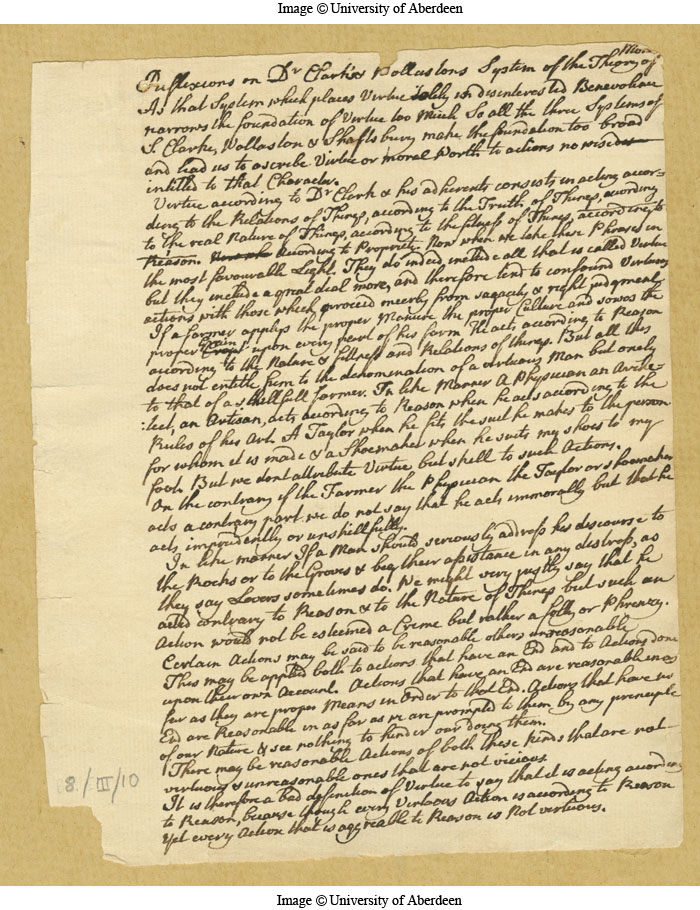 Image © University of Aberdeen
Reflexions on Dr Clarkes & Wollastons System of the Theory of
As that System which places Virtue solely in disinterested Benevolence
narrows the foundation of Virtue too Much So all the three Systems of
S. Clarke, Wollaston & Shaftsbury make the foundation too broad
and lead us to ascribe Virtue or moral Worth to actions no
intitled to that Character.
Virtue according to Dr Clark & his adherents consists in acting accor-
ding to the Relations of Things, according to the Truth of Things, acording
to the real Nature of Things, according to the fitness of Things, according to
Reason. According to Propriety. Now when we take these Phrases in
the most favourable Light. They do indeed include all that is called Virtue
but they include a great deal more, and therefore tend to confound Virtuous
actions with those which proceed meerly from sagacity & right judgment,
If a farmer applys the proper Manure the proper Culture and sowes the
proper Grain upon every pearl of his farm He acts according to Reason
according to the Nature & fitness and Relations of things. But all this
does not entitle him to the denomination of a virtuous Man but onely
to that of a skillfull farmer. In like Manner A Physician an Archi-
:tect, an Artisan, acts according to Reason when he acts according to the
Rules of his Art. A Taylor when he fits the suit he makes to the person
for whom it is made & a Shoemaker when he suits my shoes to my
foot. But we dont attribute Virtue but skill to such Actions.
On the contrary if the Farmer the Physician the Taylor or shoemaker
acts a contrary part we do not say that he acts immorally but that he
acts imprudently or unskillfully.
In like manner If a Man should seriously address his discourse to
the Rocks or to the Groves & beg their assistance in any distress, as
they say Lovers sometimes do. We might very justly say that he
acted contrary to Reason & to the Nature of Things but such an
Action would not be esteemed a Crime but rather a folly or Phrenzy.
Certain Actions may be said to be reasonable others unreasonable
This may be applied both to actions that have an End and to Actions done
upon their own Account. Actions that have an End are reasonable in as
far as they are proper Means in Order to that End. Actions that have no
End are Reasonable in as far as we are prompted to them by any principle
of our Nature & see nothing to hinder our doing them.
There may be reasonable Actions of both these kinds that are not
virtuous & unreasonable ones that are not vicious.
It is therefore a bad definition of Virtue to say that it is acting according
to Reason, because though every Virtuous Action is according to Reason
Yet every Action that is aggreable to Reason is Not virtuous.
8/III/10
Image © University of Aberdeen